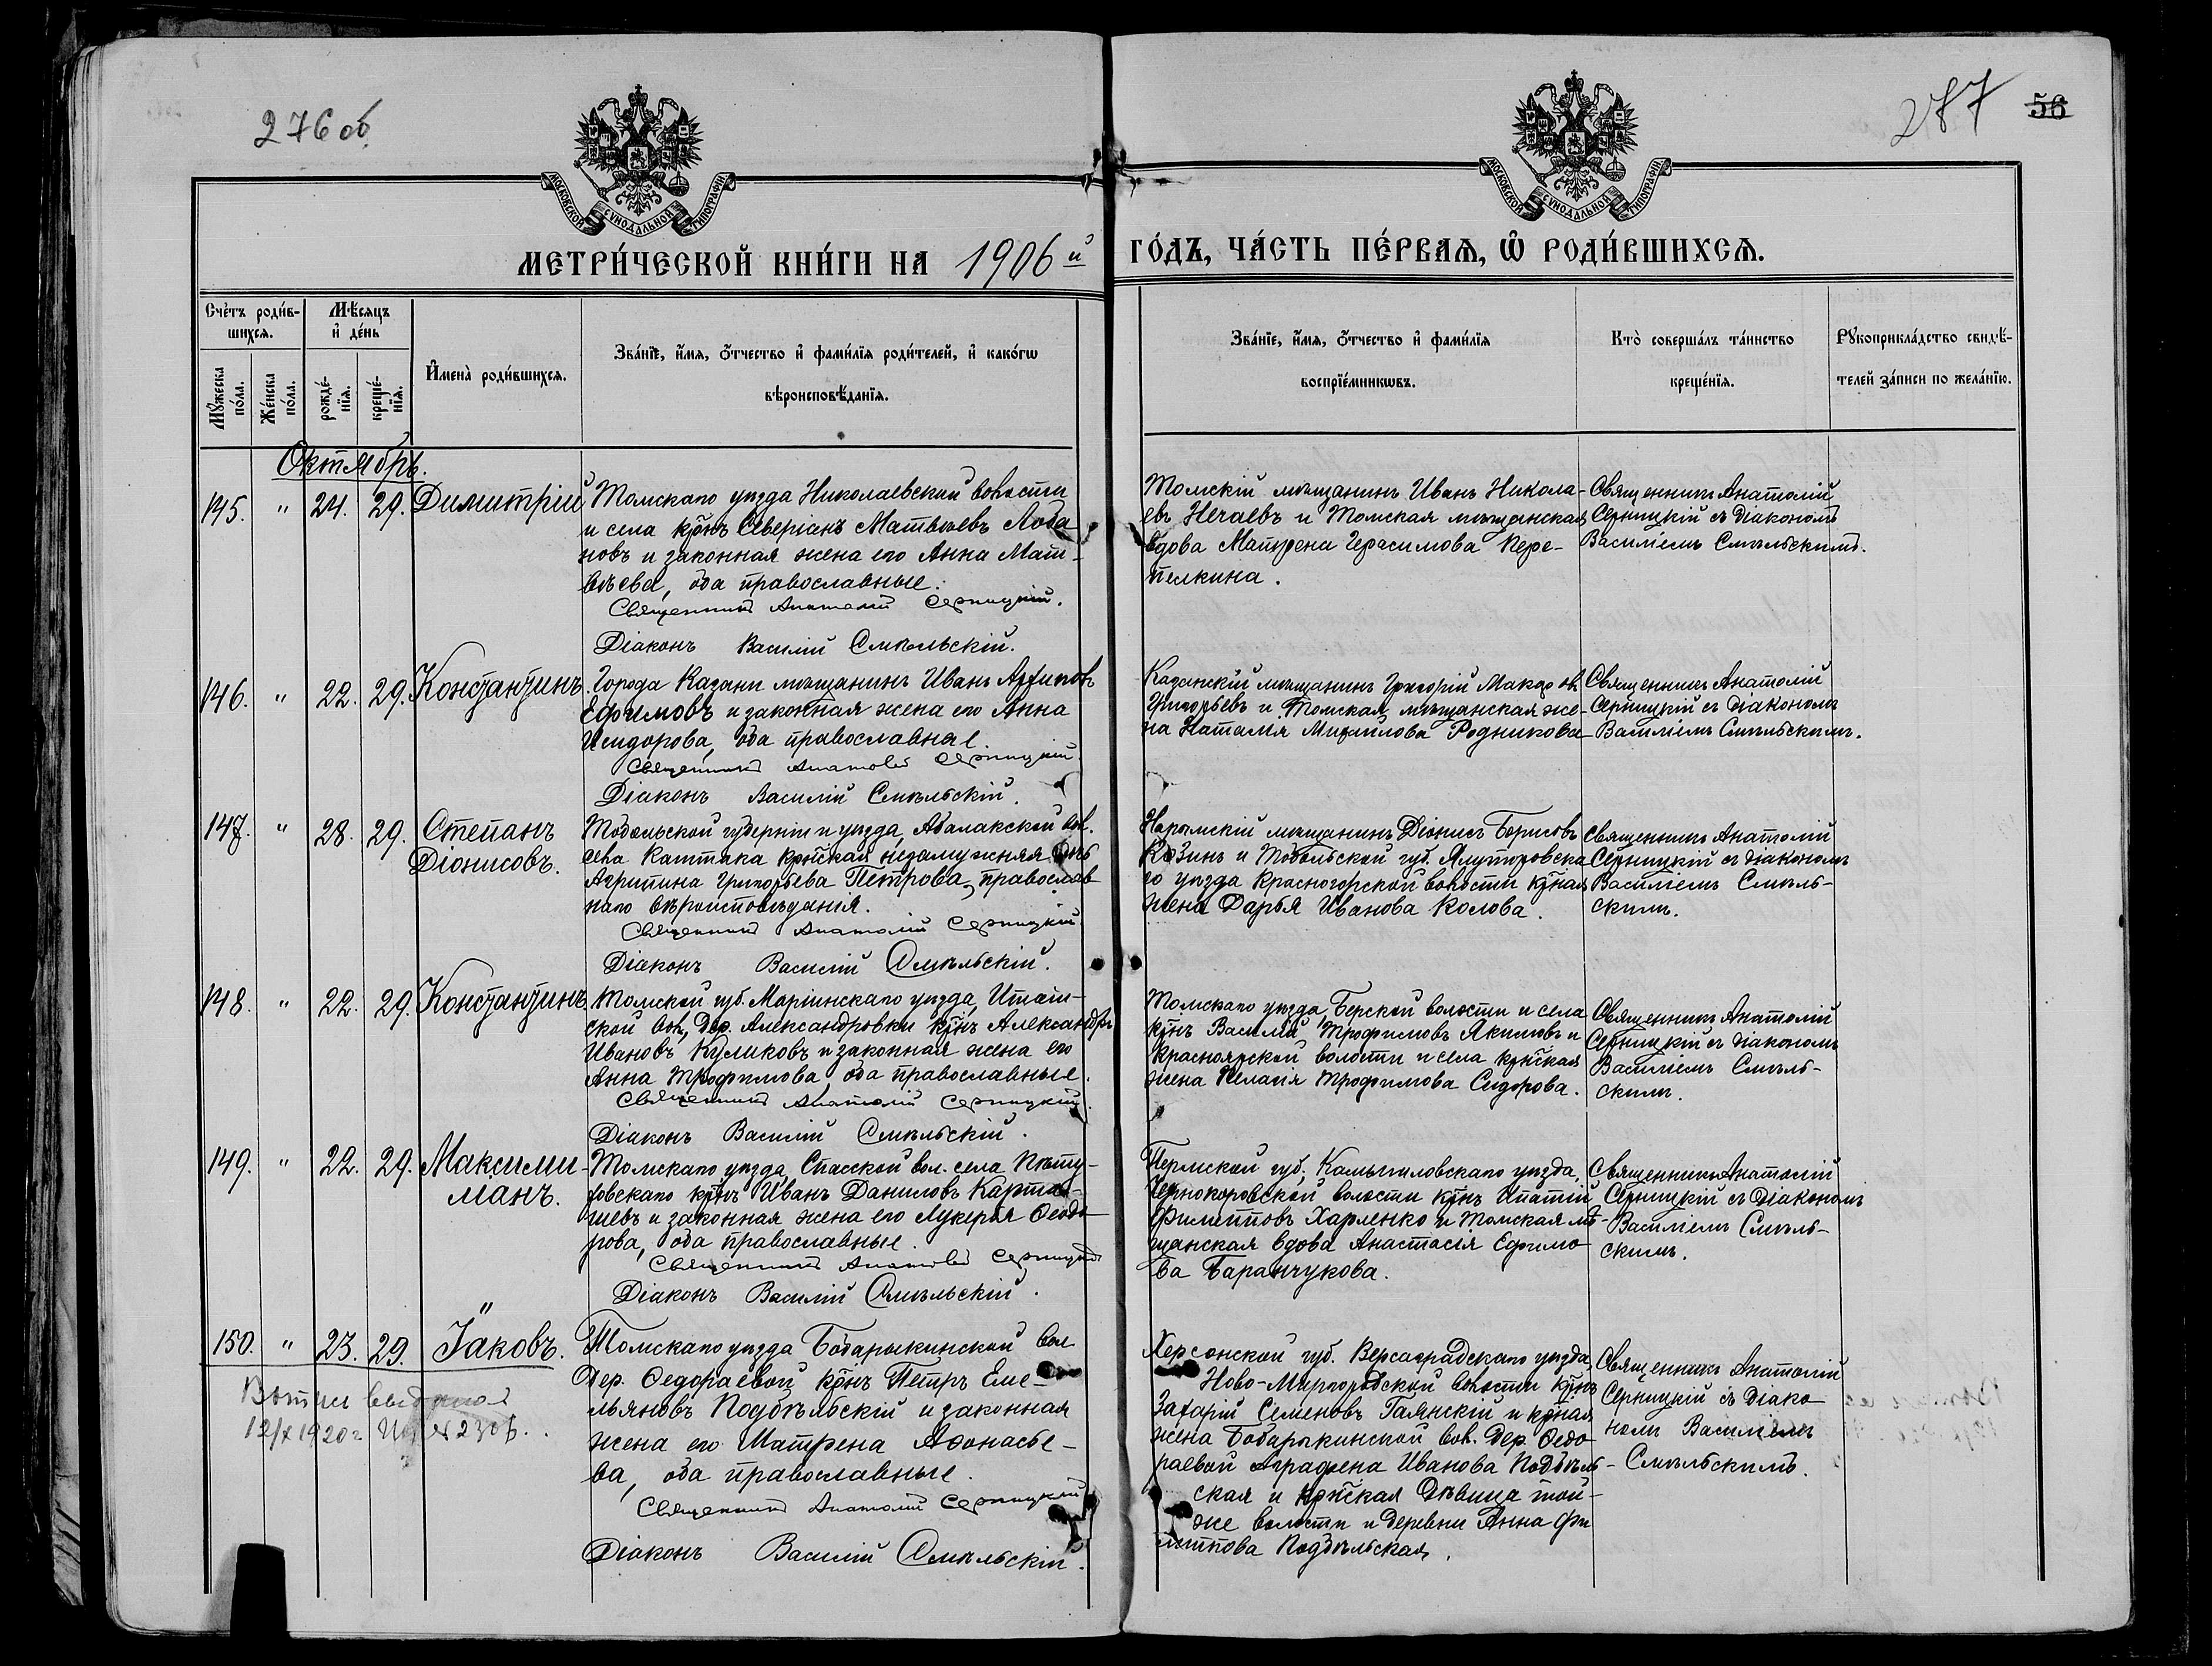 276 об.
277
56
МОСКОВСКОЙ СѴНОДАЛЬНОЙ ТИПОГРАФІИ
МОСКОВСКОЙ СѴНОДАЛЬНОЙ ТИПОГРАФІИ
МЕТРИ́ЧЕСКОЙ КНИ́ГИ НА 1906 й ГО́ДЪ, ЧА́СТЬ ПЕ́РВАѦ, Ѿ РОДИ́ВШИХСѦ.
Счéтъ роди́в-
шихсѧ.
Мѣ́сѧцъ
и҆ де́нь
Мꙋ́жеска
по́ла.
Же́нска
по́ла.
рожде́-
нїѧ.
креще́-
нїѧ.
И҆мена̀ роди́вшихсѧ.
Зва́нїе, и҆́мѧ, ѻ҆́тчество и҆ фами́лїѧ роди́телей, и҆ како́гѡ
вѣроисповѣ́данїѧ.
Зва́нїе, и҆́мѧ, ѻ҆́тчество и҆ фами́лїѧ
воспрїе́мникѡвъ.
Кто̀ соверша́лъ та́инство
креще́нїѧ.
Рꙋкоприкла́дство свидѣ́-
телей за́писи по жела́нїю.
Октябрь.
145. " 24. 29. Димитрій
Томскаго уѣзда Николаевской волости
и села крнъ Северіанъ Матвѣевъ Лоба
новъ и законная жена его Анна Мат-
вѣева, оба православные.
Священникъ Анатолій Серницкій.
Діаконъ Василій Смѣльскій.
Томскій мѣщанинъ Иванъ Никола-
евъ Нечаевъ и Томская мѣщанская
вдова Матрена Герасимова Пере-
пелкина.
Священникъ Анатолій
Серницкій съ Діакономъ
Василіемъ Смѣльскимъ.
146. " 22. 29. Константинъ.
Города Казани мѣщанинъ Иванъ
Ефимовъ и законная жена его Анна
Исидорова, оба православные.
Священникъ Анатолій Серницкій
Діаконъ Василій Смѣльскій.
Казанскій мѣщанинъ Григорій Макаровъ
Григорьевъ и Томская мѣщанская же-
на Наталія Михаилова Родникова
Священникъ Анатолій
Серницкій съ Діакономъ
Василіемъ Смѣльскимъ.
147. " 28. 29. Степанъ
Діонисовъ.
Тобольской губерніи и уѣзда, Абалакской вол.
села крнская незамужняя
Агрипина Григорьева Петрова, православ
наго вѣроисповѣданія.
Священникъ Анатолій Серницкій
Діаконъ Василій Смѣльскій.
Нарымскій мѣщанинъ Діонисъ Борисовъ
Козинъ и Тобольской губ. Ялуторовска
го уѣзда Красногорской волости крная
жена Дарья Иванова Колова.
Священникъ Анатолій
Серницкій съ діакономъ
Василіемъ Смѣль-
скимъ.
148. " 22. 29. Константинъ.
Томской губ. Маріинскаго уѣзда, Итат-
ской вол, дер. Александровки крнъ Александръ
Ивановъ Куликовъ и законная жена его
Анна Трофимова, оба православные.
Священникъ Анатолій Серницкій.
Діаконъ Василій Смѣльскій.
Томскаго уѣзда, Берской волости и села
крнъ Василій Трофимовъ Якимовъ и
Красноярской волости и села крнская
жена Пелагія Трофимова Сидорова.
Священникъ Анатолій
Серницкій съ діакономъ
Василіемъ Смѣль-
скимъ.
149. " 22. 29. Максими-
ліанъ.
Томскаго уѣзда, Спасской вол. села Пѣту-
ховскаго крнъ Иванъ Даниловъ Карта-
шевъ и законная жена его Лукерья Ѳеодо
рова, оба православные.
Священникъ Анатолій Серницкій
Діаконъ Василій Смѣльскій.
Пермской губ; Камышловскаго уѣзда,
Чернокоровской волости крнъ Ипатій
Филипповъ Харленко и Томская мѣ-
щанская вдова Анастасія Ефимо
ва Баранчукова.
Священникъ Анатолій
Серницкій съ Діакономъ
Василіемъ Смѣль-
скимъ.
150. " 23. 29. Іаковъ.
Томскаго уѣзда Бобарыкинской вол
дер. Ѳедораевой крнъ Петръ Еме-
льяновъ Поддѣльскій и законная
жена его Матрена Аѳонасье-
ва, оба православные.
Священникъ Анатолій Серницкій
Діаконъ Василій Смѣльскій.
Херсонской губ. уѣзда,
Ново-Миргородской волости крнъ
Захарій Семеновъ Галнскій и крная
жена Бобарыкинской вол. дер. Ѳедо
раевой Аграфена Иванова Поддѣль-
ская и крнская дѣвица той-
же волости и деревни Анна Фи
липпова Поддѣльская.
Священникъ Анатолій
Серницкій съ Діако
номъ Василіемъ
Смѣльскимъ.
12/X 1920 г.